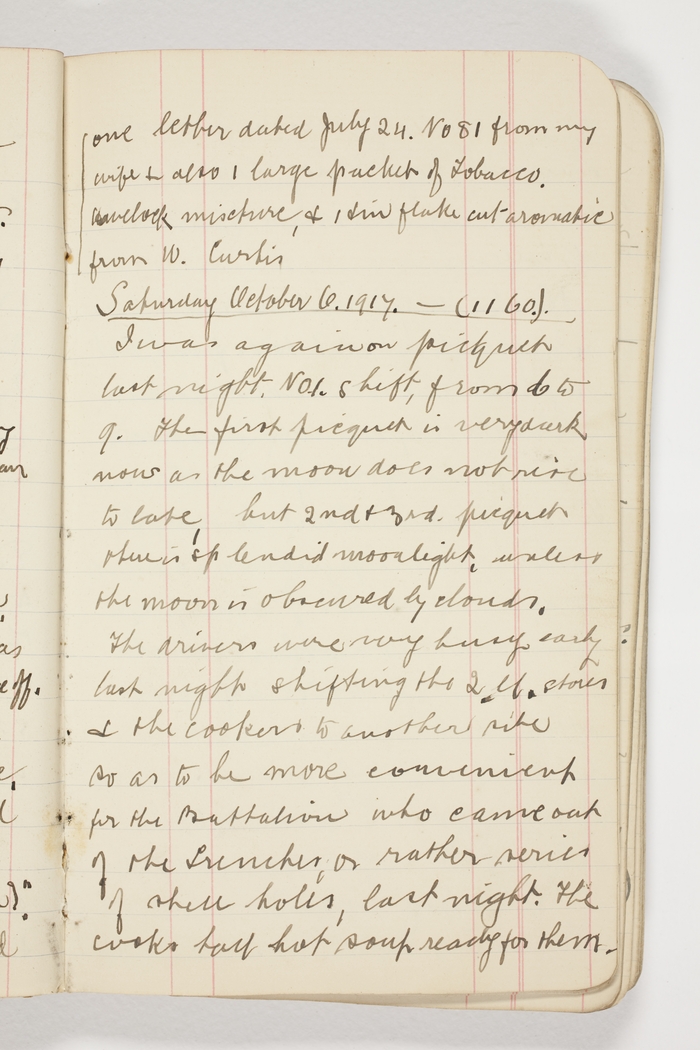 one letter dated July 24. No 81 from my
wife & also 1 large packet of Tobacco.
mixture, & 1 tin flake cut aromatic
from W. Curtis
Saturday October 6. 1917. — (1160).
I was again on picquet
last night. No 1. shift, from 6 to
9. The first picquet is very dark
now as the moon does not rise
to late, but 2nd & 3rd. picquet
there is splendid moonlight, unless
the moon is obscured by clouds.
The drivers were very busy early
last night shifting the Q. M. stores
& the cookers to another site
so as to be more convenient
for the Battalion who came out
of the trenches, or rather series
of shell holes, last night. The
cooks had hot soup ready for them.